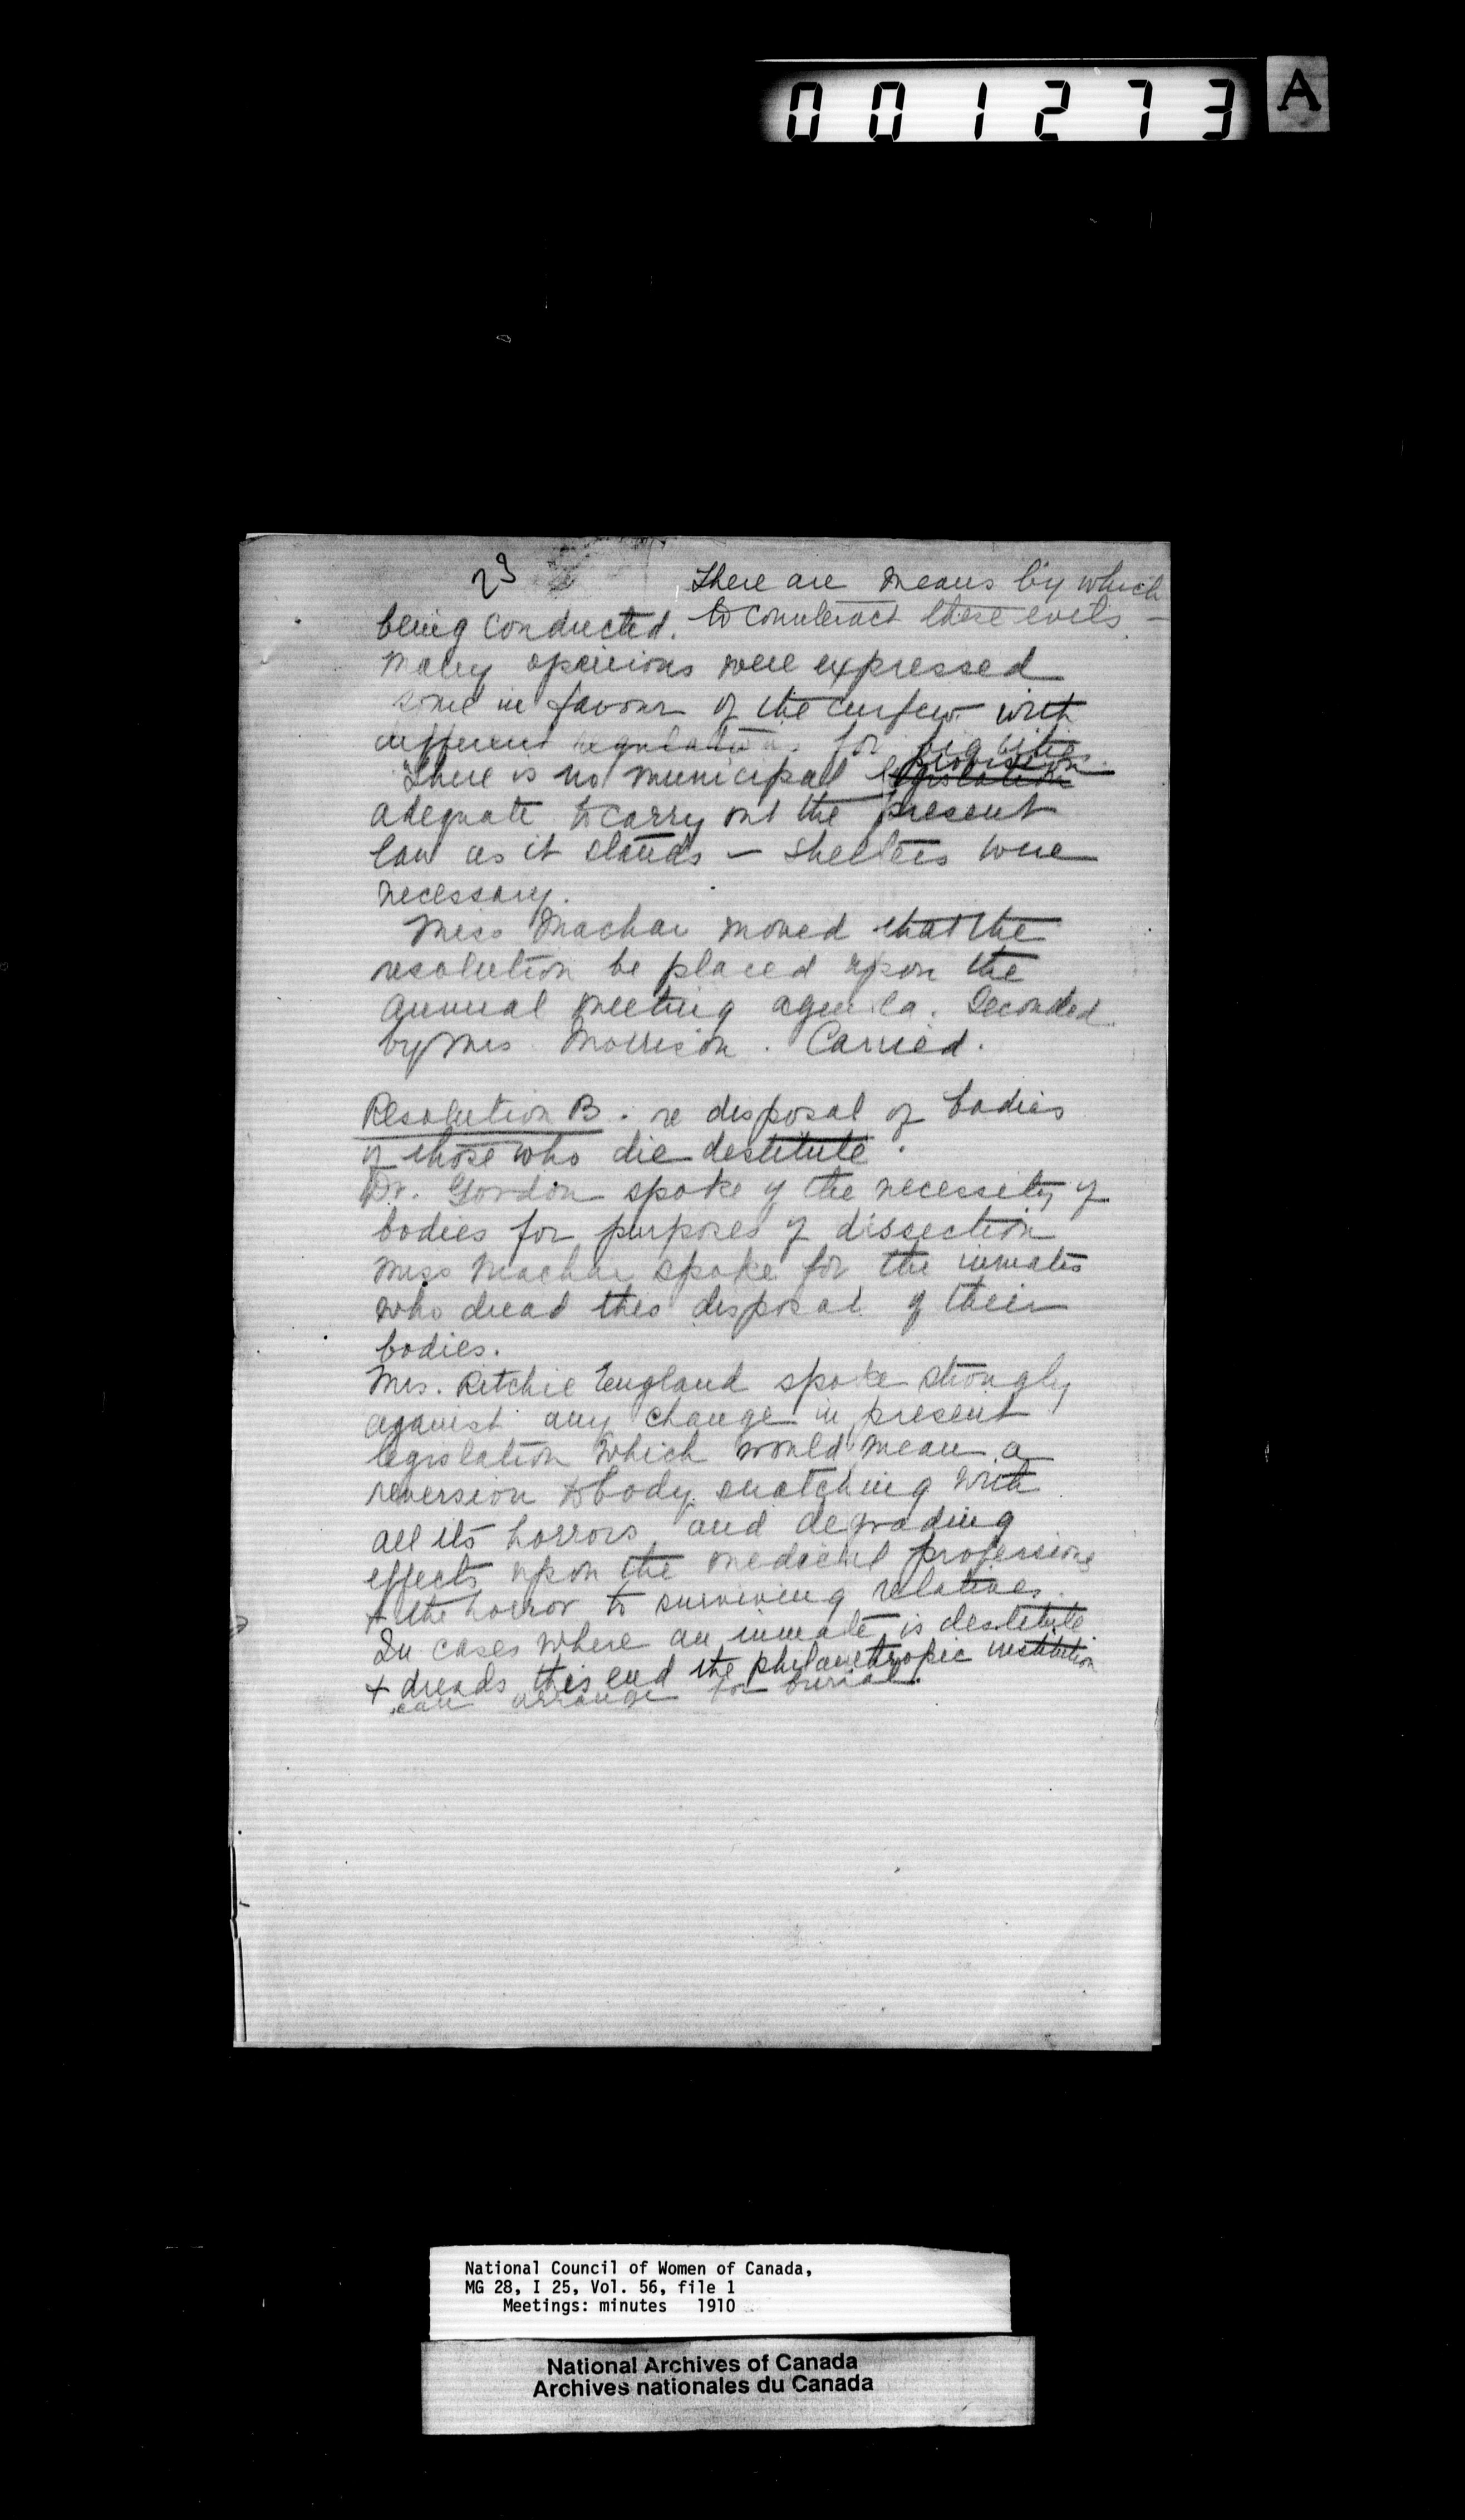 001273 A
23
There are means by which
being conducted. to counteract these evils –
Many opinions were expressed
some in favour of the curfew with
different regulations for big cities
There is no municipal legislation provision
adequate to carry out the present
law as it stands – shelters were
necessary.
Miss Machar moved that the
resolution be placed upon the
annual meeting agenda. Seconded
by Mrs Morrison. Carried.
Resolution B. re disposal of bodies
of those who die destitute.
Dr. Gordon spoke of the necessity of
bodies for purposes of dissection
Miss Machar spoke for the inmates
who dread this disposal of their
bodies.
Mrs. Ritchie England spoke strongly
against any change in present
legislation which would mean a
reversion to body snatching with
all its horrors and degrading
effects upon the medical professions
+ the horror to surviving relatives.
In cases where an inmate is destitute
+ dreads this end the philanthropic institution
can arrange for burial.
National Council of Women of Canada,
MG 28, I 25, Vol. 56, file 1
Meetings: minutes 1910
National Archives of Canada
Archives nationales du Canada